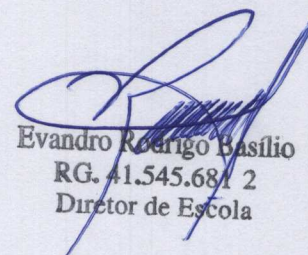 Evandro Rodrigo Basílio
RG. 41.545.681 2
Diretor de Escola